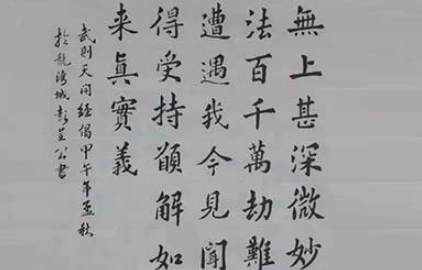 無上甚深微妙
法百千萬劫難
遭遇我今見聞
得受持願解如
来眞實義
武則天開經偈甲午年孟秋
於龍城彭公書